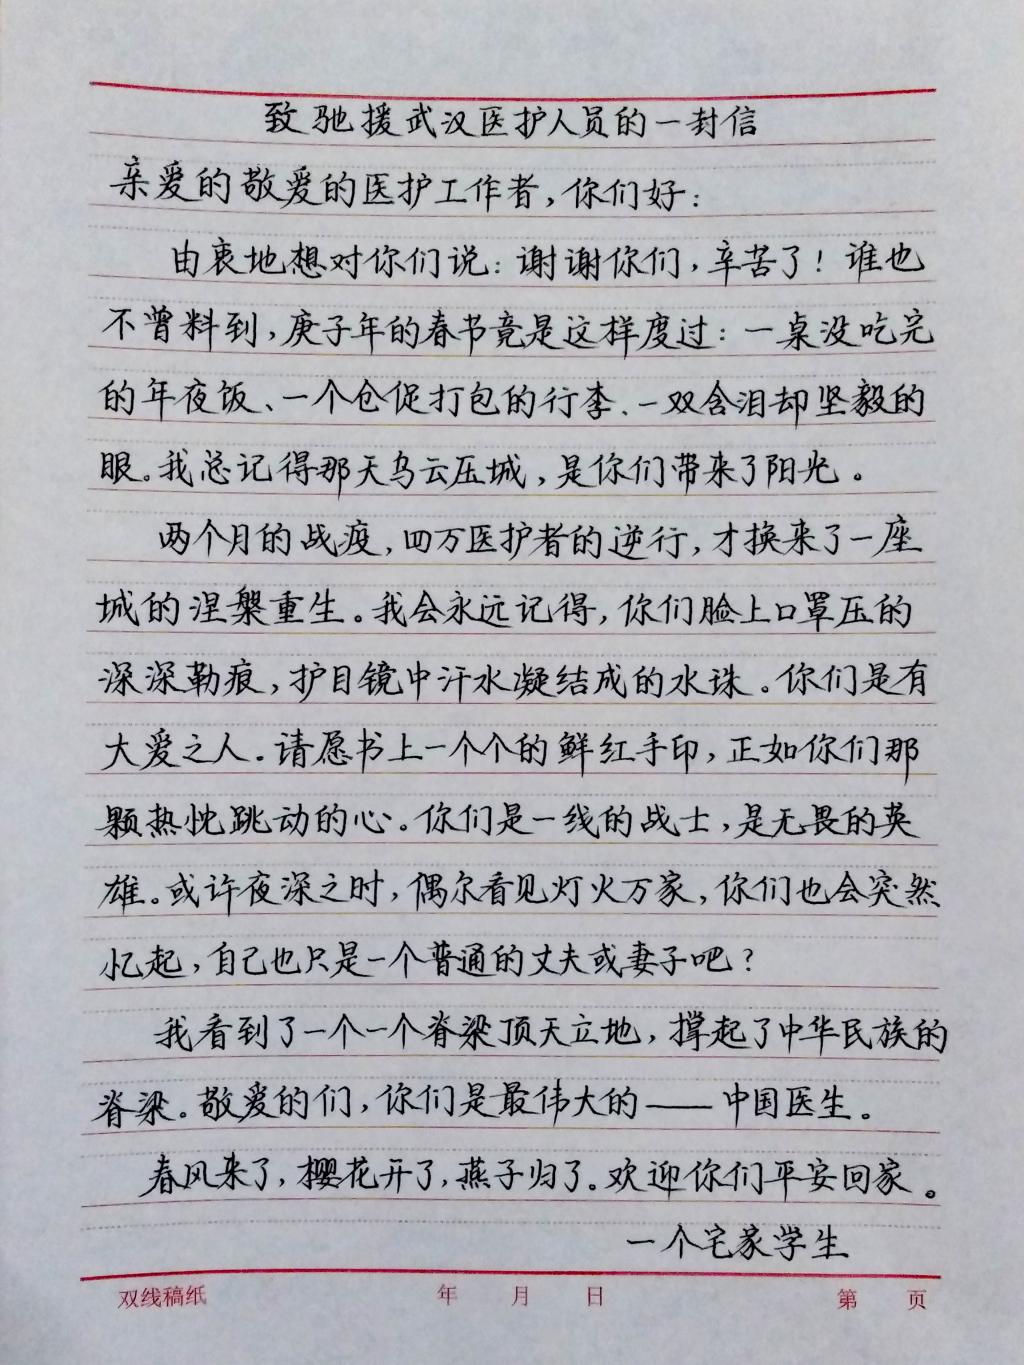 致驰援武汉医护人员的一封信
亲爱的敬爱的医护工作者，你们好：
由衷地想对你们说：谢谢你们，辛苦了！谁也
不曾料到，庚子年的春节竟是这样度过：一桌没吃完
的年夜饭、一个仓促打包的行李、一双含泪却坚毅的
眼。我总记得那天乌云压城，是你们带来了阳光。
两个月的战疫，四万医护者的逆行，才换来了一座
城的涅槃重生。我会永远记得，你们脸上口罩压的
深深勒痕，护目镜中汗水凝结成的水珠。你们是有
大爱之人。请愿书上一个个的鲜红手印，正如你们那
颗热忱跳动的心。你们是一线的战士，是无畏的英
雄。或许夜深之时，偶尔看见灯火万家，你们也会突然
忆起，自己也只是一个普通的丈夫或妻子吧？
我看到了一个一个脊梁顶天立地，撑起了中华民族的
脊梁。敬爱的们，你们是最伟大的——中国医生。
春风来了，樱花开了，燕子归了。欢迎你们平安回家。
一个宅家学生
双线稿纸 年 月 日 第 页